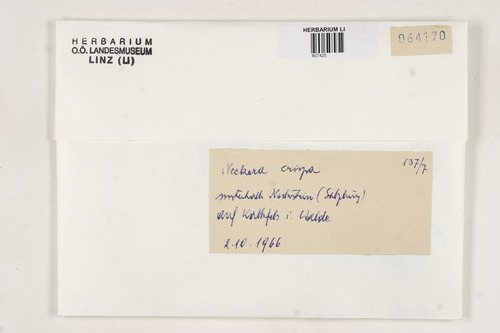 HERBARIUM
O.Ö. LANDESMUSEUM
LINZ (LI)
HERBARIUM LI
907425
064170
Neckera crispa
137/7
unterhalb (Salzburg)
auf Kalkfels i. Walde
2.10.1966